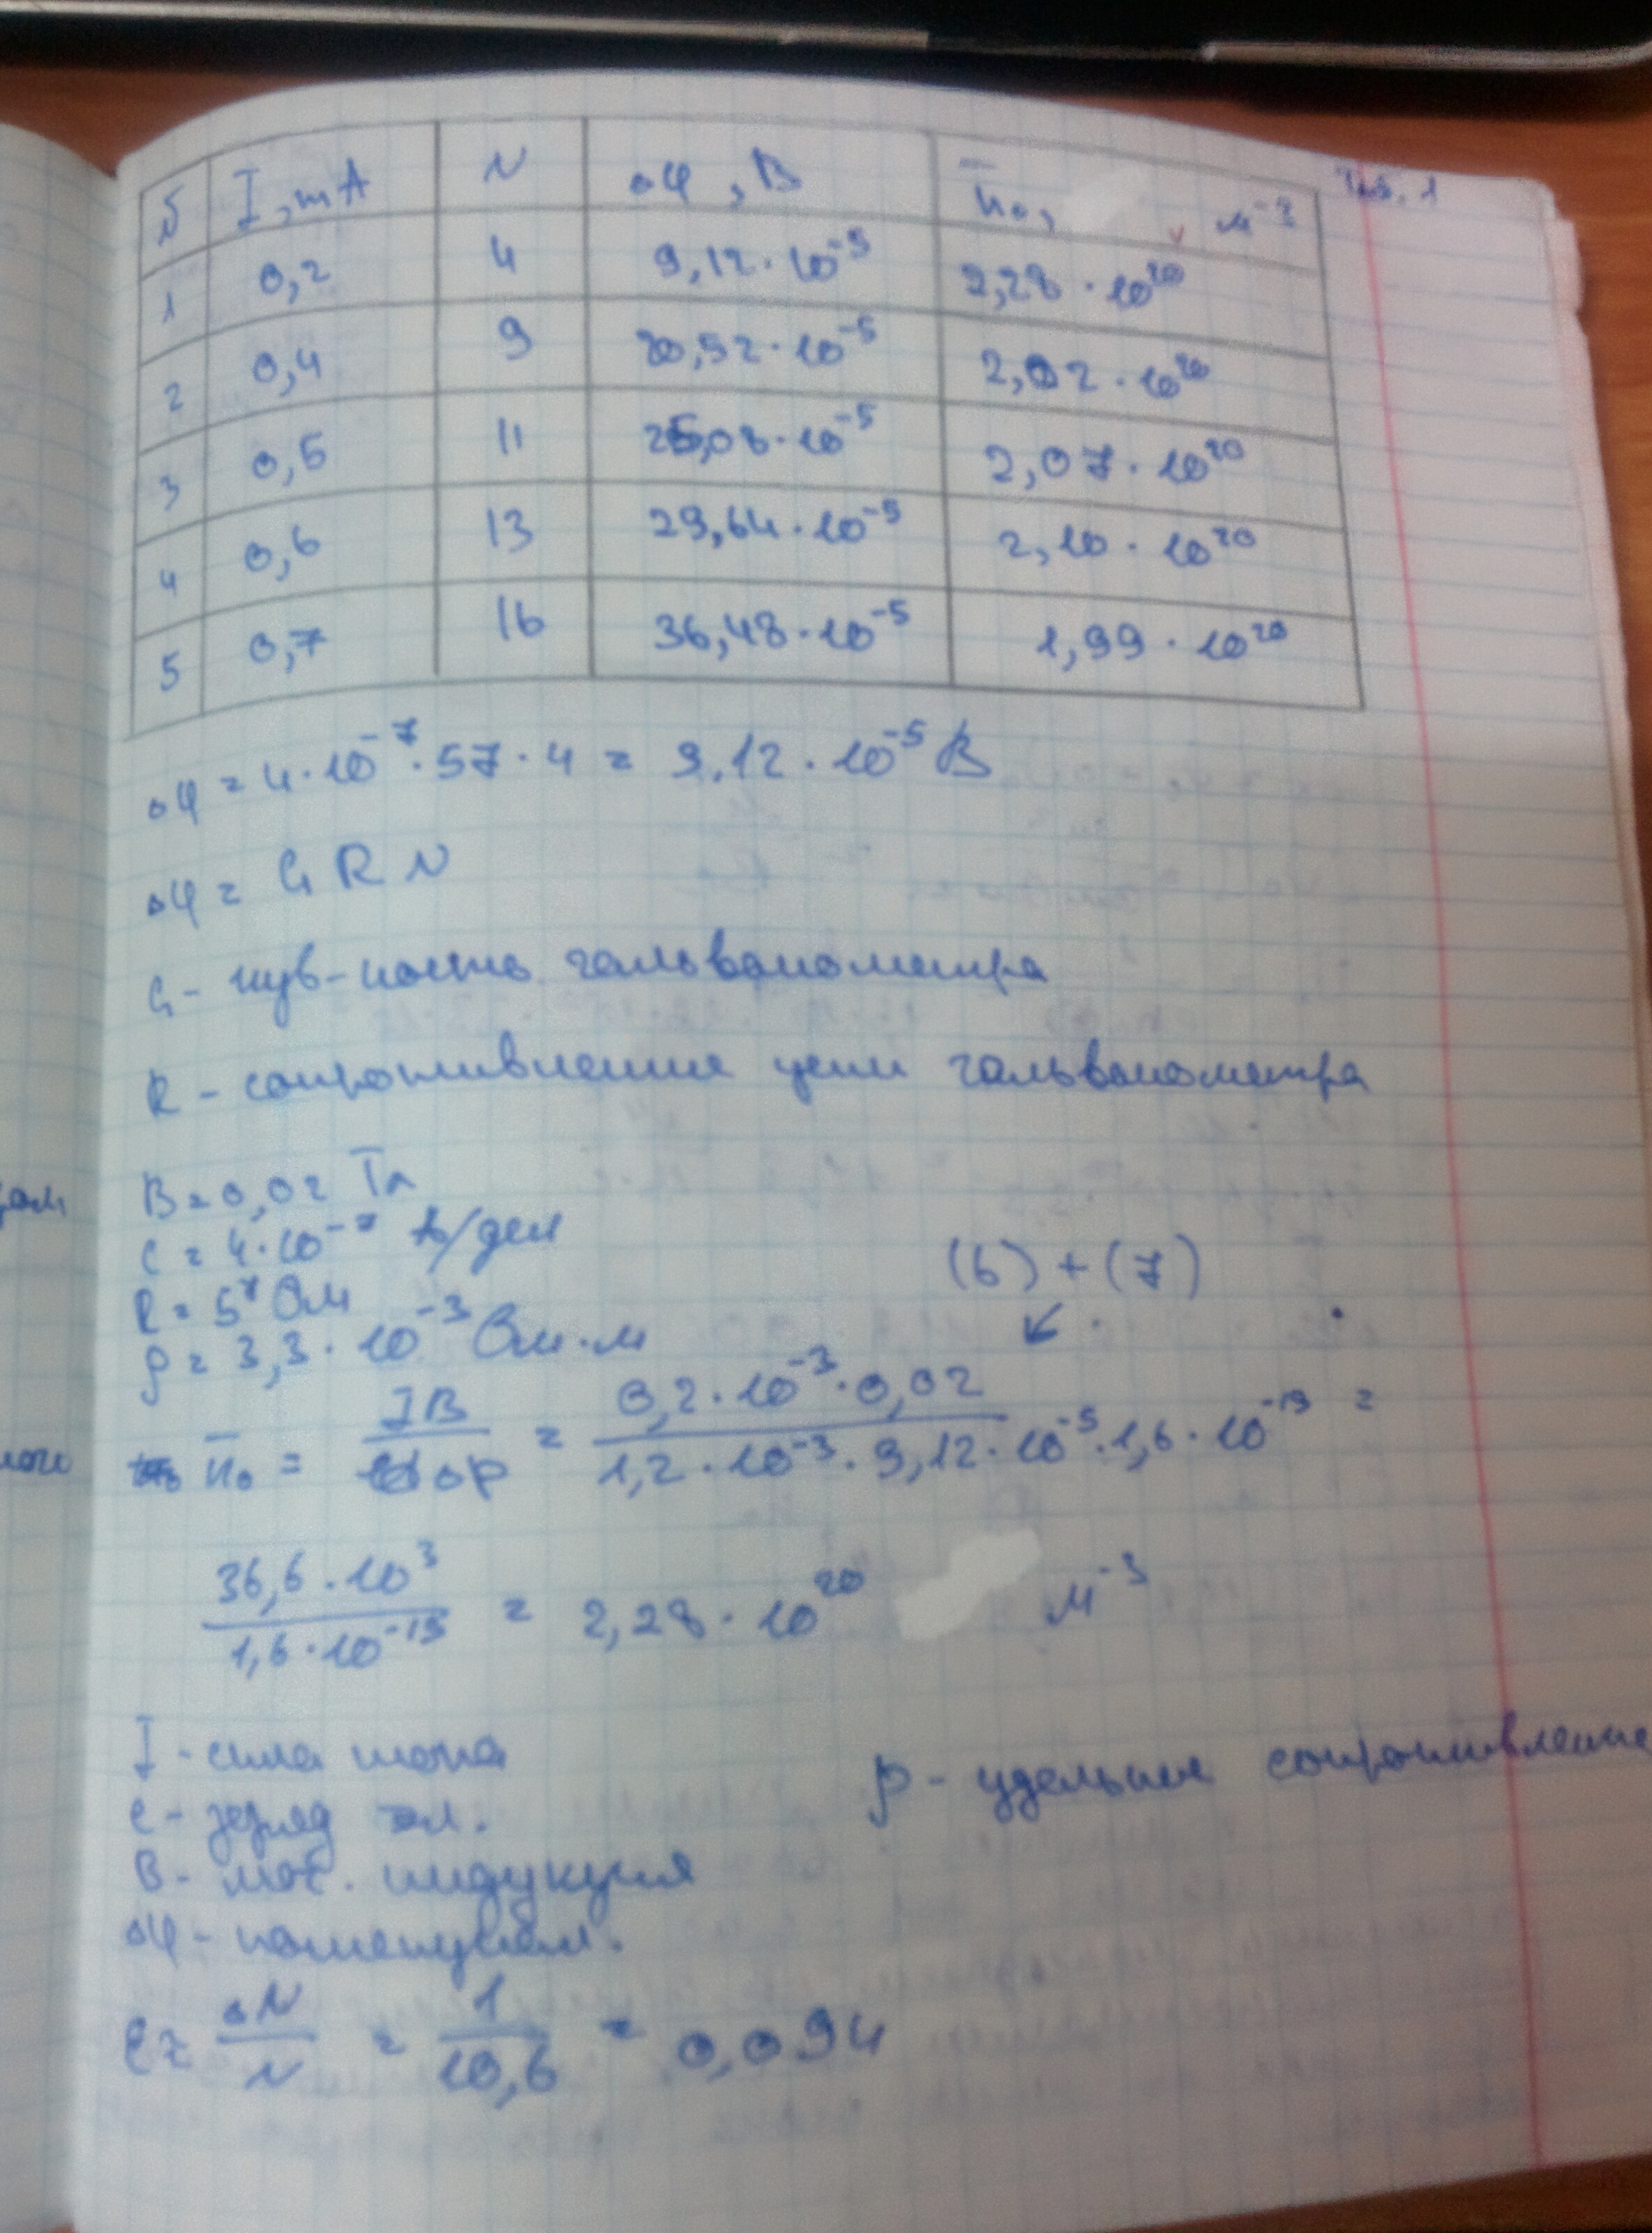 Таб. 1
№ I, mA N Δφ, В n̄₀, м⁻³
1 0,2 4 9,12·10⁻⁵ 2,28·10²⁰
2 0,4 9 20,52·10⁻⁵ 2,02·10²⁰
3 0,5 11 25,08·10⁻⁵ 2,07·10²⁰
4 0,6 13 29,64·10⁻⁵ 2,10·10²⁰
5 0,7 16 36,48·10⁻⁵ 1,99·10²⁰
Δφ = 4·10⁻⁷·57·4 = 9,12·10⁻⁵ В
Δφ = G R N
G - чув-ность гальванометра
R - сопротивление цепи гальванометра
B = 0,02 Тл
C = 4·10⁻⁷ А/дел
R = 57 Ом
(6) + (7)
ρ = 3,3·10⁻³ Ом·м
n̄₀ = IB / = 0,2·10⁻³·0,02 / 1,2·10⁻³·9,12·10⁻⁵·1,6·10⁻¹⁹ =
36,6·10³ / 1,6·10⁻¹⁹ = 2,28·10²⁰ м⁻³
I - сила тока
ρ - удельное сопротивление
e - заряд эл.
B - маг. индукция
Δφ - потенциал.
ε = ΔN / N = 1 / 10,6 = 0,094